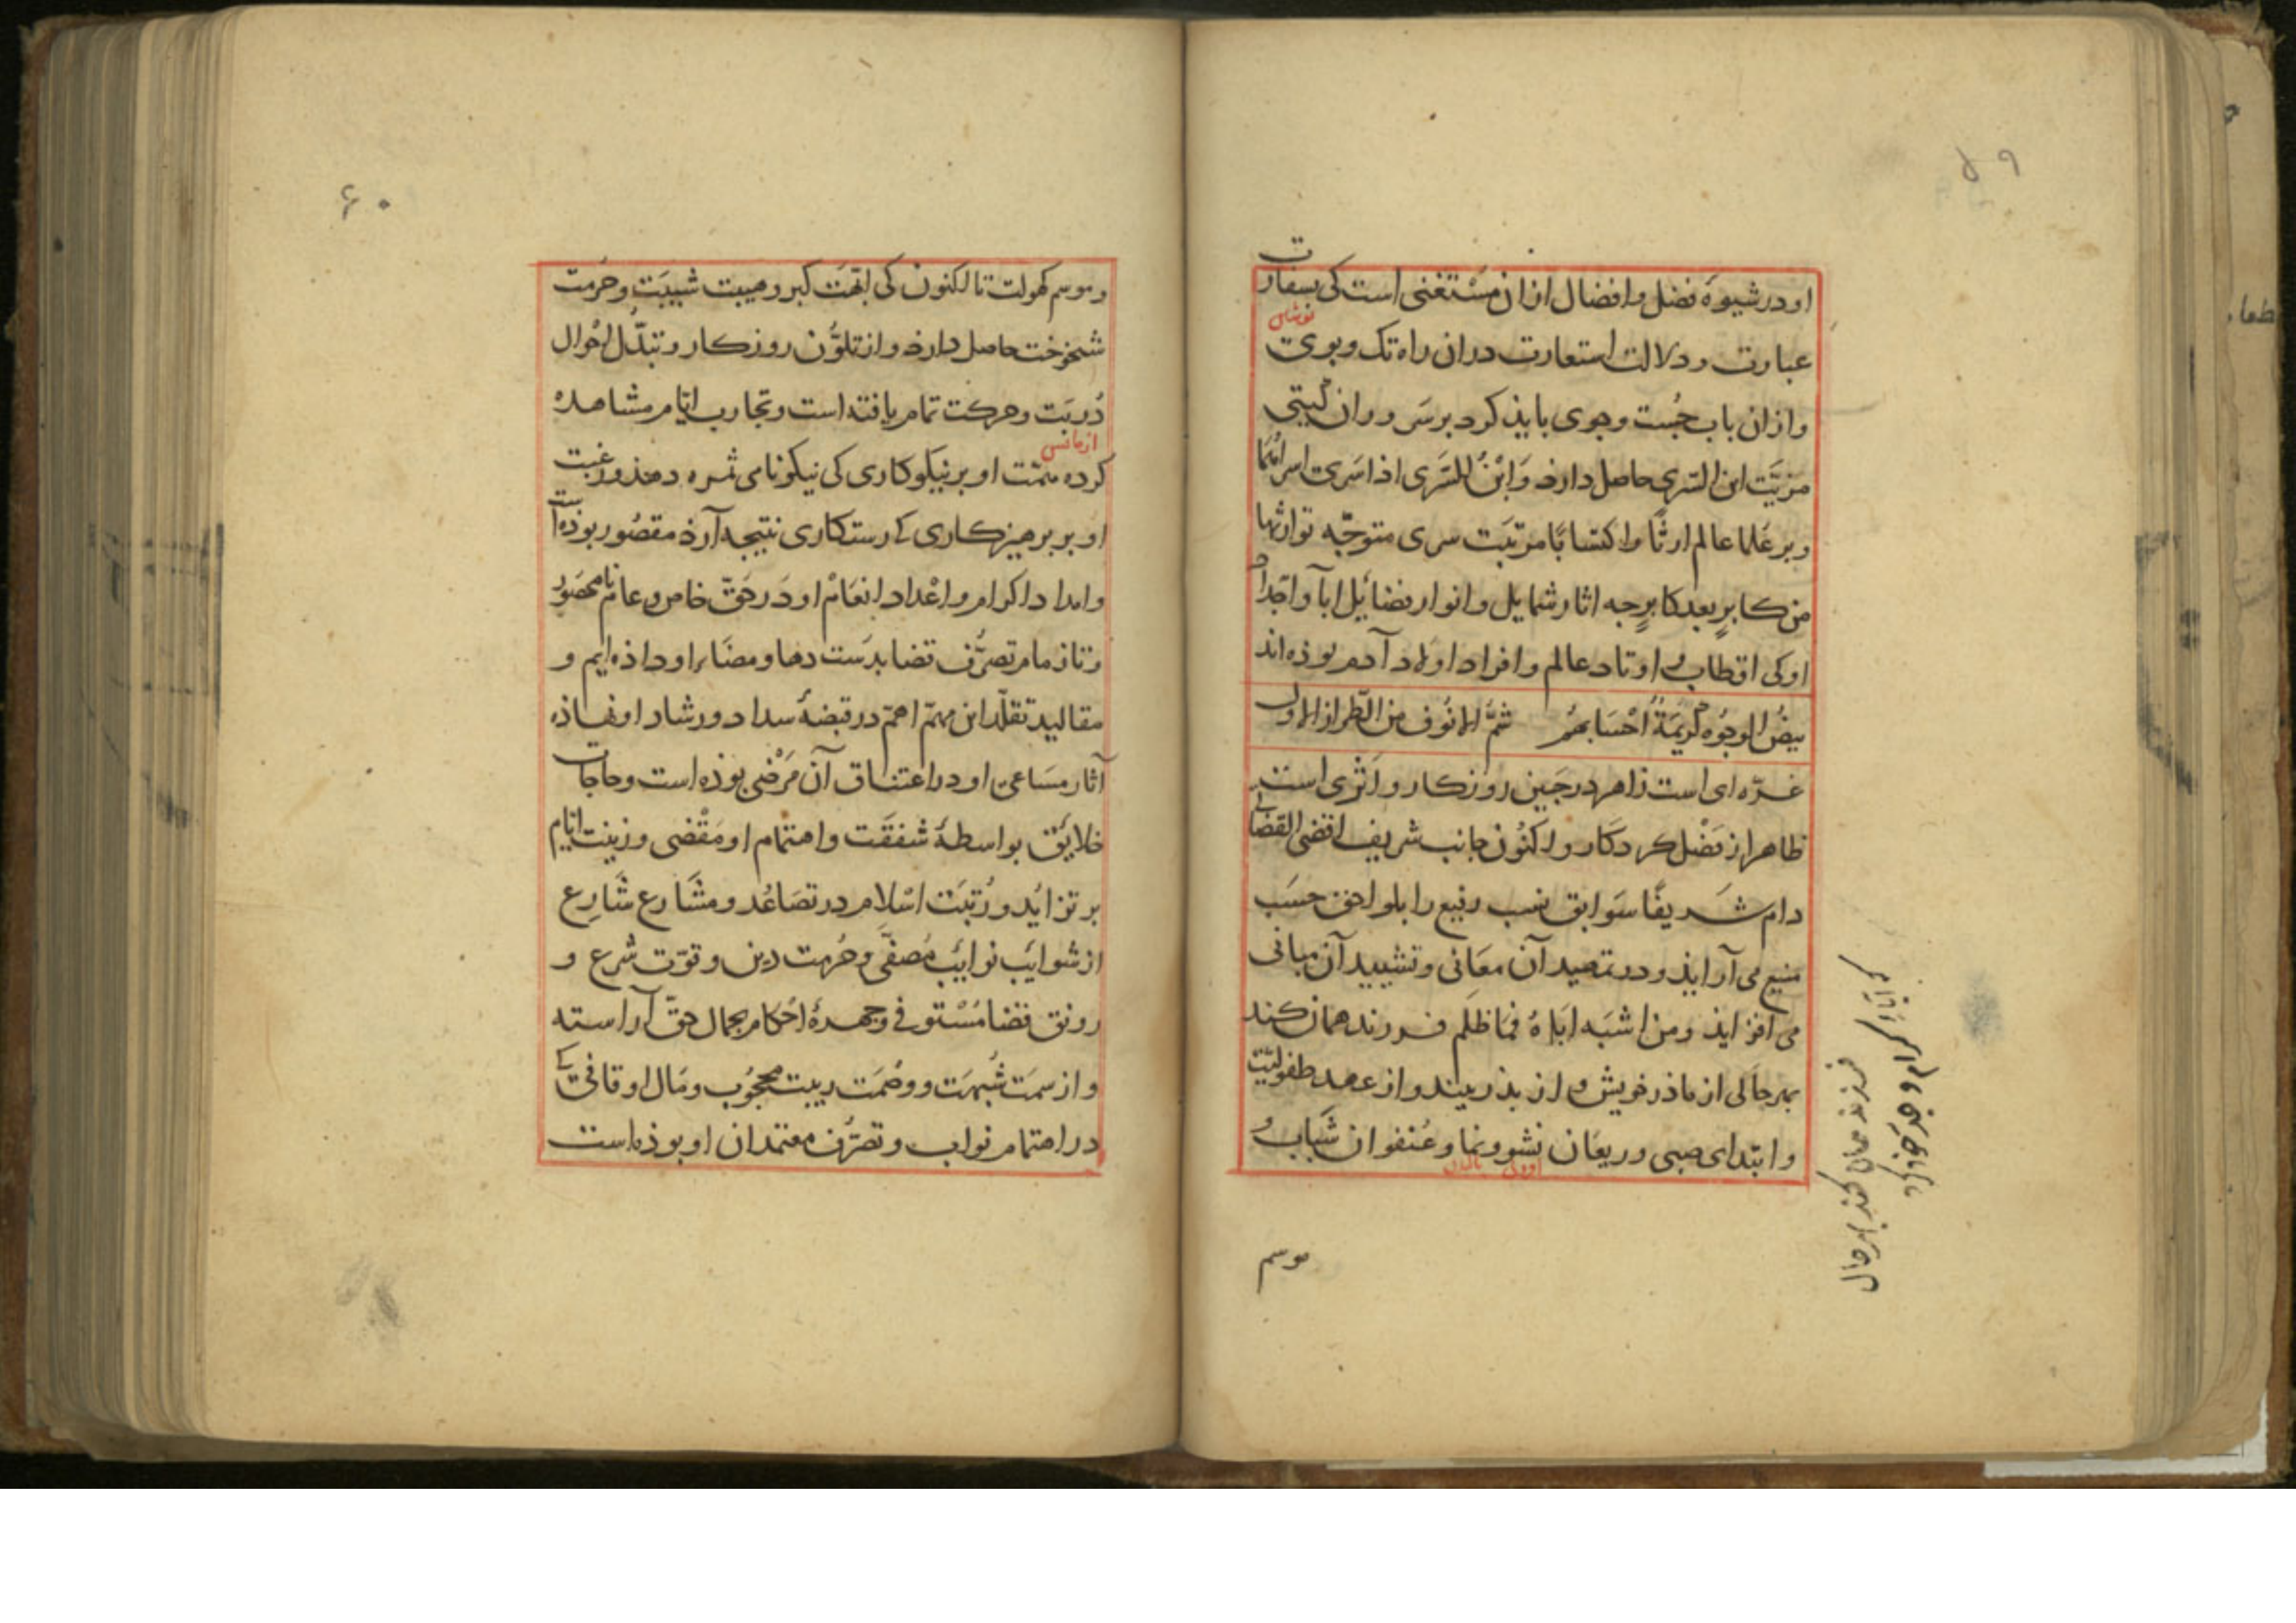 ۵۹
او در شیوهٔ فضل و افضال ازان مستغنی است کی بسفارت
عبارت و دلالت استعارت دران راه تک و پوی
و ازان باب جُست و جوی بایذ کرد بر سَروران گیتی
مزیّت ابن السَّری حاصل دارذ وَابْنُ السَّری اذا سَری اسراهُمَا
و بر عُلما عالم ارثًا و اکتسابًا مرتبَت سری متوجّه توارثها
من کابرٍ بعد کابرٍ جه اثار شمایل و انوار فضائل ابا و اجداد
او کی اقطاب و اوتاد عالم و افراد اولاد آدم بوذه اند
بیضُ الوجُوه کریمَةٌ اَحْسَابهُمُ شمُّ الانُوف من الطّراز الاول
غرّه ای است زاهر در جَبین روزکار و اَثری است
ظاهر از فَضْل کردکار و اکنُون جانب شریف اقضی القضاتی
دام شریفًا سَوابق نسب رفیع را بلواحق حسَب
منیع می آرایذ و در تمهید آن معَانی و تشیید آن مبانی
می افزایذ و من اشبَه ابَاهُ فمَا ظلم فرزند همان کند
بهر حالی از ماذر خویش و از پذر بیند و از عهد طفولیّت
و ابتدای صبی و ریعَان نشو و نما و عُنفوان شَبَاب و
که آباءِ کرام و جدّ خود کرد
فرزند همان کند بهر حال
موسم
۶۰
و موسم کهولت تا اکنون کی ابّهَت کبر و هیبت شیبَت و حُرمت
شیخوخت حاصل دارذ و از تلوُّن روزکار و تبدّل احْوال
دُربَت و حرکت تمام یافته است و تجارب ایّام مشاهده
کرده همّت او بر نیکوکاری کی نیکونامی ثمره دهذ و رغبت
او بر پرهیزکاری کی رستکاری نتیجه آرذ مقصُور بوذه است
و امداد اکرام و اعْداد انعَامْ او در حَقّ خاص و عام نامحصُور
و تا زمام تصرُّف قضا بدست دها و مضَاء او داذه ایم و
مقالید تقلّد این مهمّ اهمّ در قبضهٔ سداد و رشاد او نهاذه
آثار مسَاعی او در اعتناق آن مَرْضی بوذه است و حاجات
خلایق بواسطهٔ شفقَت و اهتمام او مَقْضی و زینت ایّام
بر تزایُد و رُتبَت اسْلام در تصَاعُد و مشَارع شَارِع
از شوایَب نوایَب مُصفّی و حُرمت دین و قوّت شرع و
رونق قضا مُسْتوفی و جهرهٔ احکام بجمال حقّ آراسته
و از سمَت شُبهَت و وصْمَت ریبت محجُوب و مَال اوقافی کی
در اهتمام نواب و تصرُّف معتمدان او بوذه است